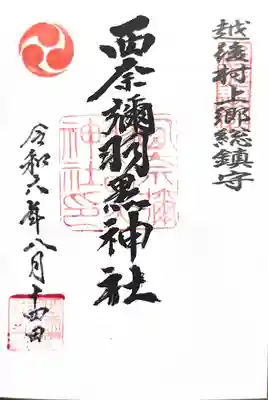 越後村上郷総鎮守
西奈彌羽黒神社
令和六年八月十四日